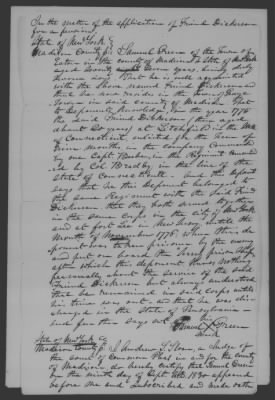 In the matter of the application of Friend Dickerson
for a pension,
State of New York
Madison County Samuel Green of the Town of
Eaton in the County of Madison & State of New York
aged Seventy seven years, being duly
sworn says that he is well acquainted
with the above named Friend Dickerson and
that he now resides in the
Town in said county of Madison. That
to deponents knowledge in the year 1776
the said Friend Dickerson (then aged
about 20 years) at Litchfield in the State
of Connecticut enlisted for the term of
months, in the company commanded
by one Capt. in the Regiment command
ed by Col. Bradley in the line of the
State of Connecticut. And this deponent
says that he this deponent belonged to
the same Regiment with the said Friend
Dickerson, that they both served together
in the same corps in the city of New York
and at fort Lee in New Jersey, until the
Month of November 1776, when this de
ponent was taken prisoner by the enemy
and put on board the Jersey prison ship
after which this deponent knew nothing
personally about the service of the said
Friend Dickerson but always understood
that he remained in said corps until
his time was out, and that he was dis
charged in the State of Pennsylvania
and further says not
Samuel X Green
State of New York
Madison County I, Andrew S. Sloan, a Judge of
the court of Common Pleas in and for the county
of Madison, do hereby certify that Samuel Green
on the ninth day of Sept. 1830 appeared
before me and subscribed and made oath